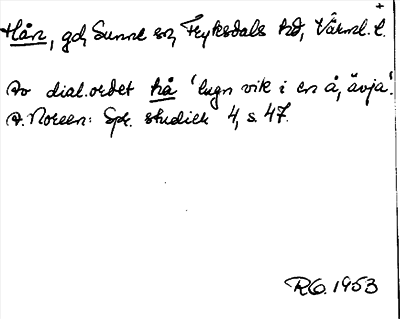 +
Hån, gd, Sunne sn, Fryksdals hd, Värml. l.
Av dial.ordet hå 'lugn vik i en å, ävja'.
A. Noreen: Spr. studier 4, s. 47.
RO. 1953